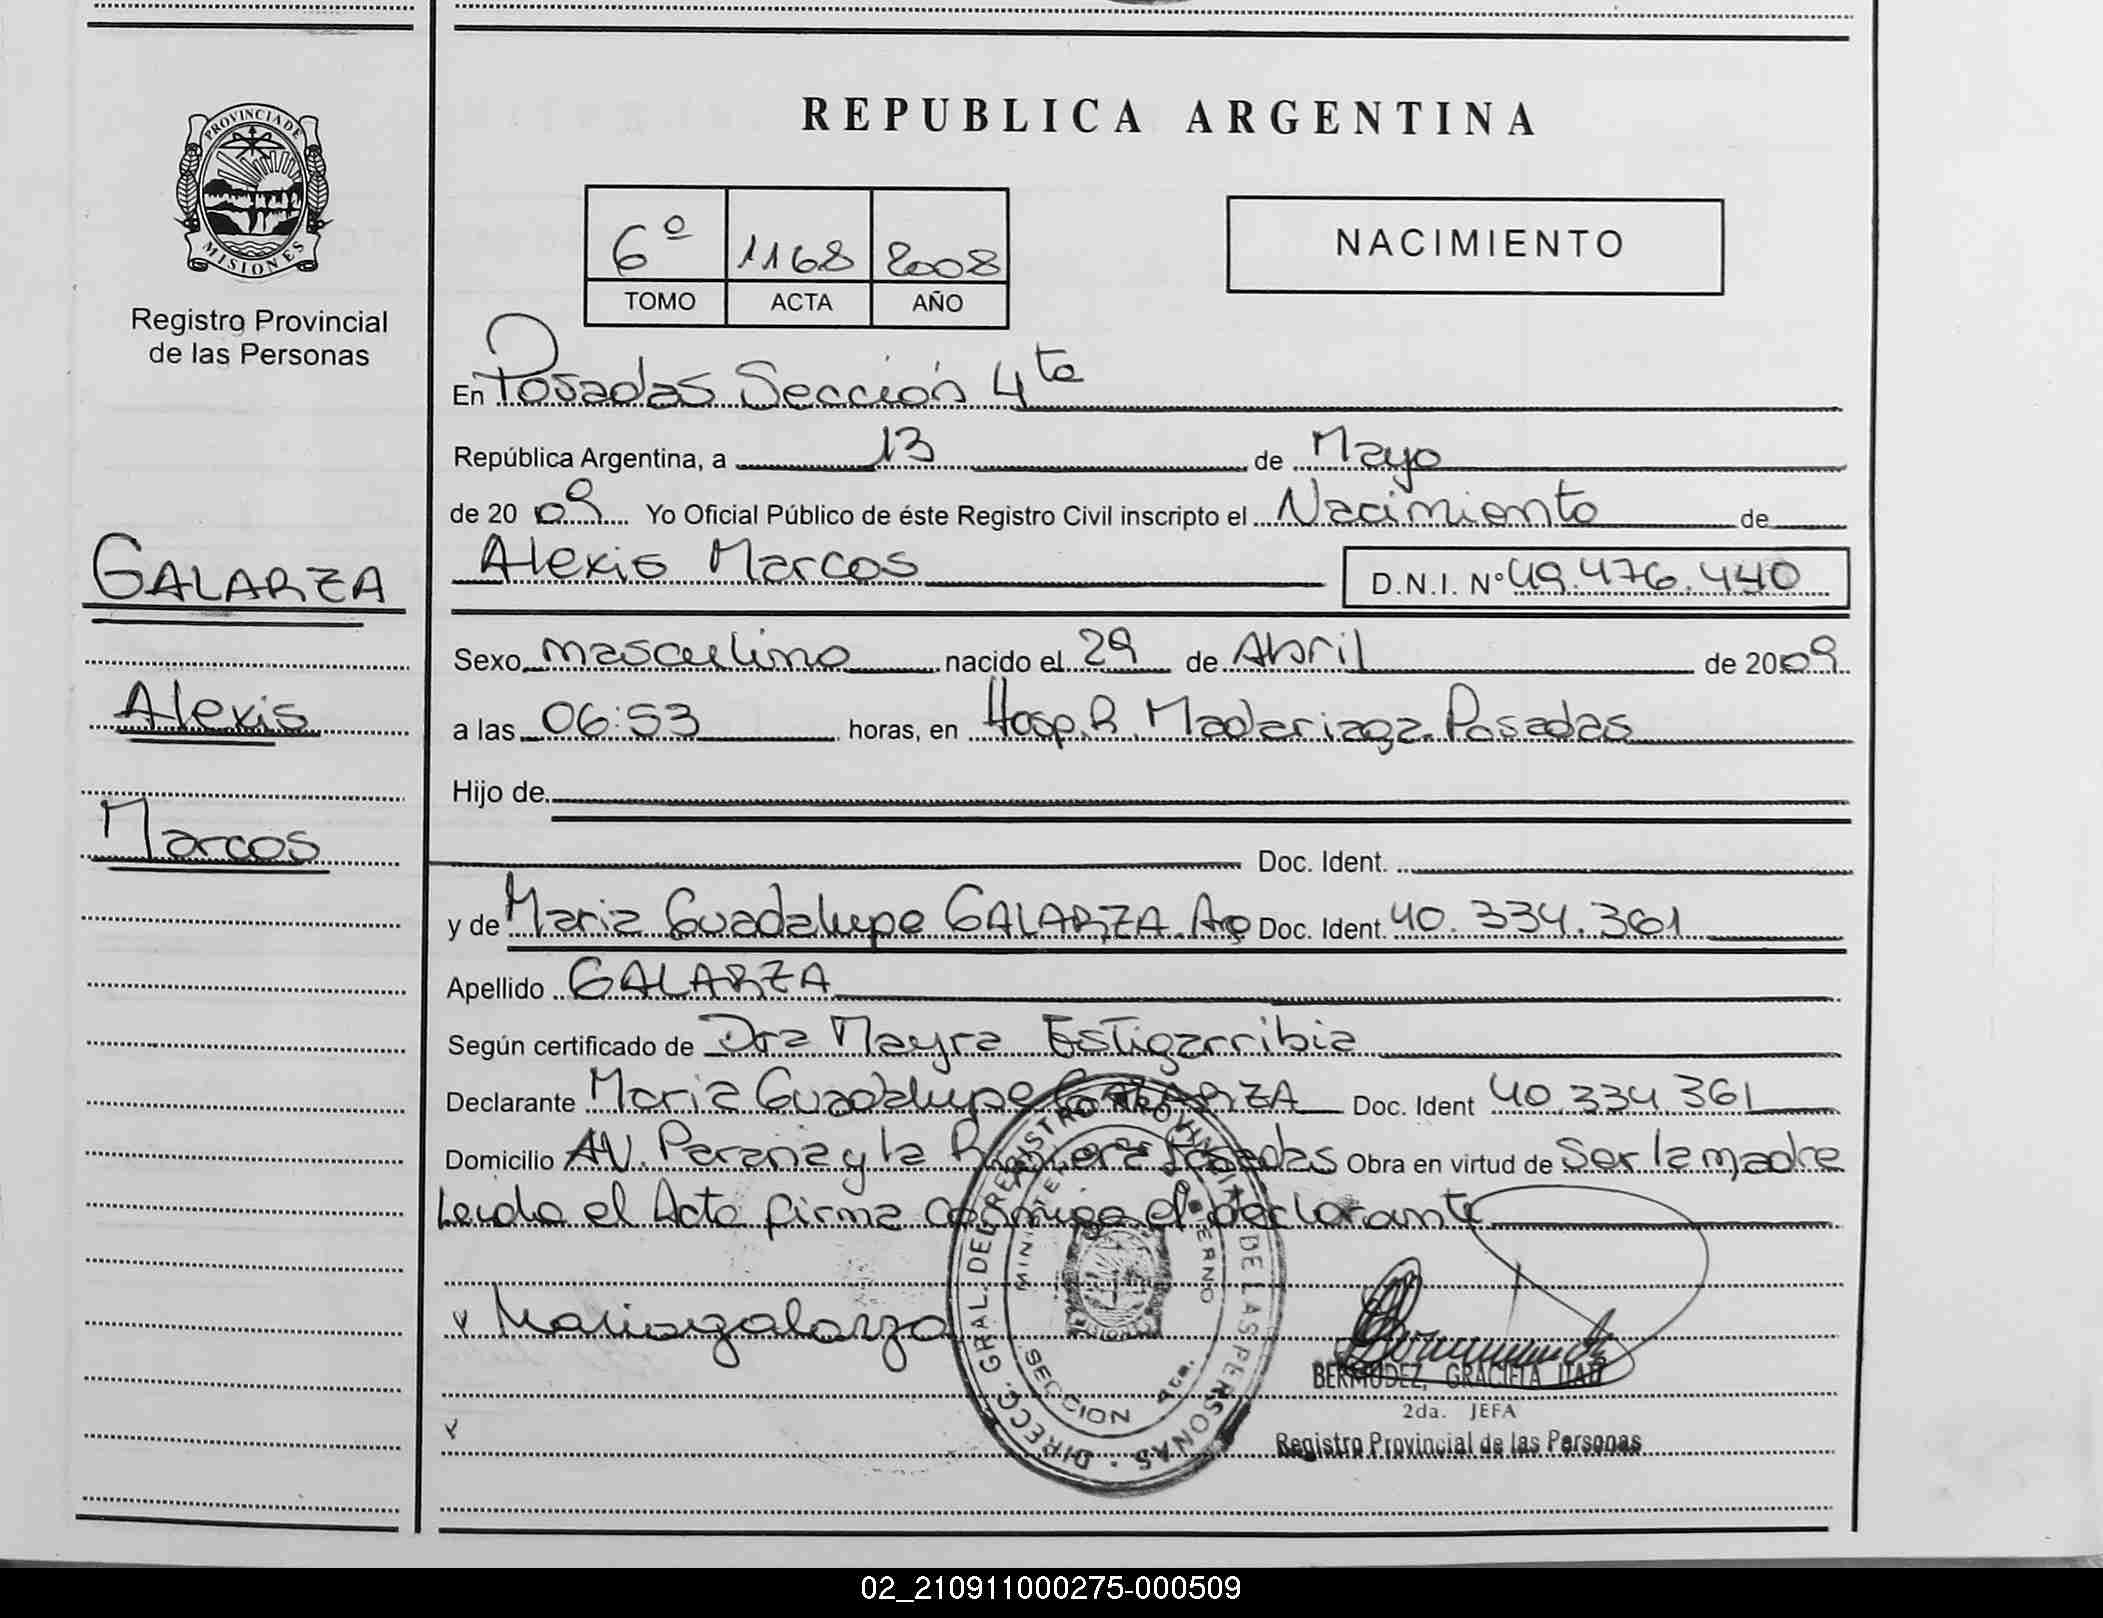 REPUBLICA ARGENTINA
PROVINCIA DE
MISIONES
Registro Provincial
de las Personas
6º 1168 2008
TOMO ACTA AÑO
NACIMIENTO
En Posadas Sección 4ta
República Argentina, a 13 de Mayo
de 2009 Yo Oficial Público de éste Registro Civil inscripto el Nacimiento de
Alexis Marcos D.N.I. Nº 49.476.440
GALARZA
Alexis
Marcos
Sexo masculino nacido el 29 de Abril de 2009
a las 06:53 horas, en Hosp. R. Madariaga. Posadas
Hijo de
Doc. Ident.
y de Maria Guadalupe GALARZA. Arg Doc. Ident. 40.334.361
Apellido GALARZA
Según certificado de Dra Mayra Estigarribia
Declarante Maria Guadalupe GALARZA Doc. Ident 40.334.361
Domicilio AV. Parana y la Posadas Obra en virtud de Ser la madre
Leida el Acta firma conmigo el declarante
Maria galarza
DIRECC. GRAL. DEL REGISTRO PROVINCIAL DE LAS PERSONAS
SECCION 4ta.
BERMUDEZ, GRACIELA
2da. JEFA
Registro Provincial de las Personas
02_210911000275-000509